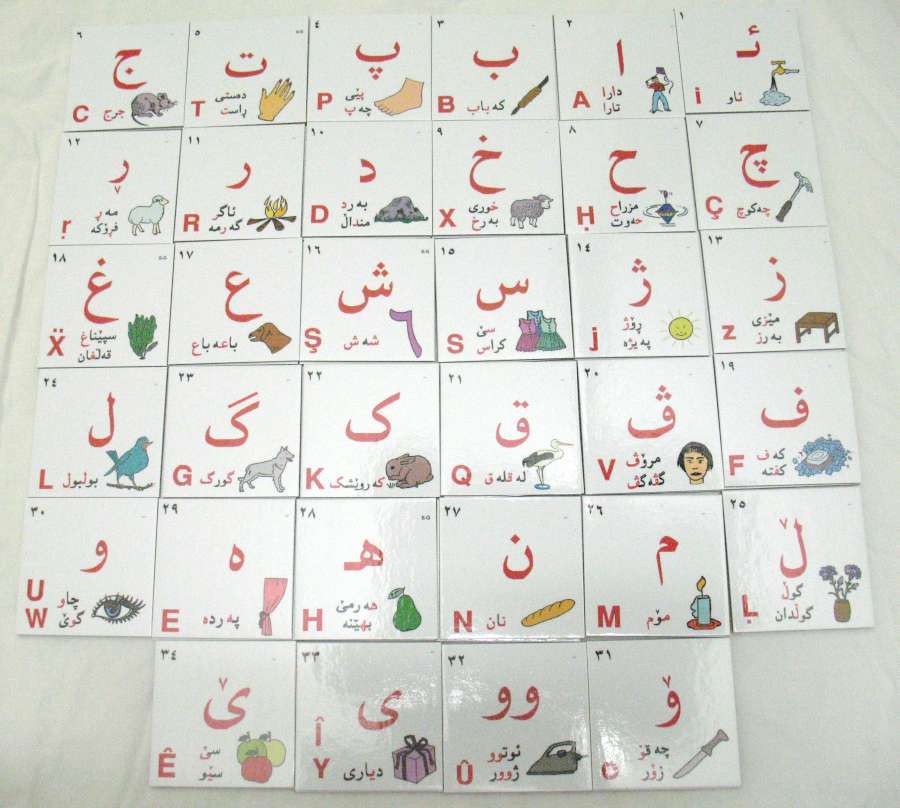 ١
ئ
ئاو
i
٢
ا
دارا
تارا
A
٣
ب
كەباب
B
٤
پ
پێی
چەپ
P
٥
ت
دەستی
ڕاست
T
٦
ج
جرج
C
٧
چ
چەكوچ
Ç
٨
ح
مزراح
حەوت
Ḥ
٩
خ
خوری
بەرخ
X
١٠
د
بەرد
منداڵ
D
١١
ر
ئاگر
گەرمە
R
١٢
ڕ
مەڕ
فڕۆكە
ṛ
١٣
ز
مێزی
بەرز
z
١٤
ژ
ڕۆژ
پەیژە
j
١٥
س
سێ
كراس
S
١٦
ش
شەش
Ş
١٧
ع
باعەباع
١٨
غ
سپێناغ
قەلغان
Ẍ
١٩
ف
كەف
كفتە
F
٢٠
ڤ
مرۆڤ
گڤەگڤ
V
٢١
ق
لەقلەق
Q
٢٢
ک
كەروێشک
K
٢٣
گ
گورگ
G
٢٤
ل
بولبول
L
٢٥
ڵ
گوڵ
گوڵدان
Ḷ
٢٦
م
مۆم
M
٢٧
ن
نان
N
٢٨
هـ
هەرمێ
بهێنە
H
٢٩
ە
پەردە
E
٣٠
و
چاو
گوێ
U
W
٣١
ۆ
چەقۆ
زۆر
O
٣٢
وو
ئوتوو
ژوور
Û
٣٣
ی
دیاری
Î
Y
٣٤
ێ
سێ
سێو
Ê